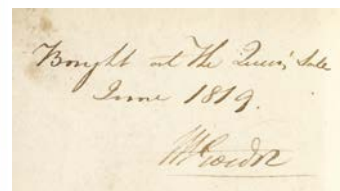 Bought at The Queen's Sale
June 1819.